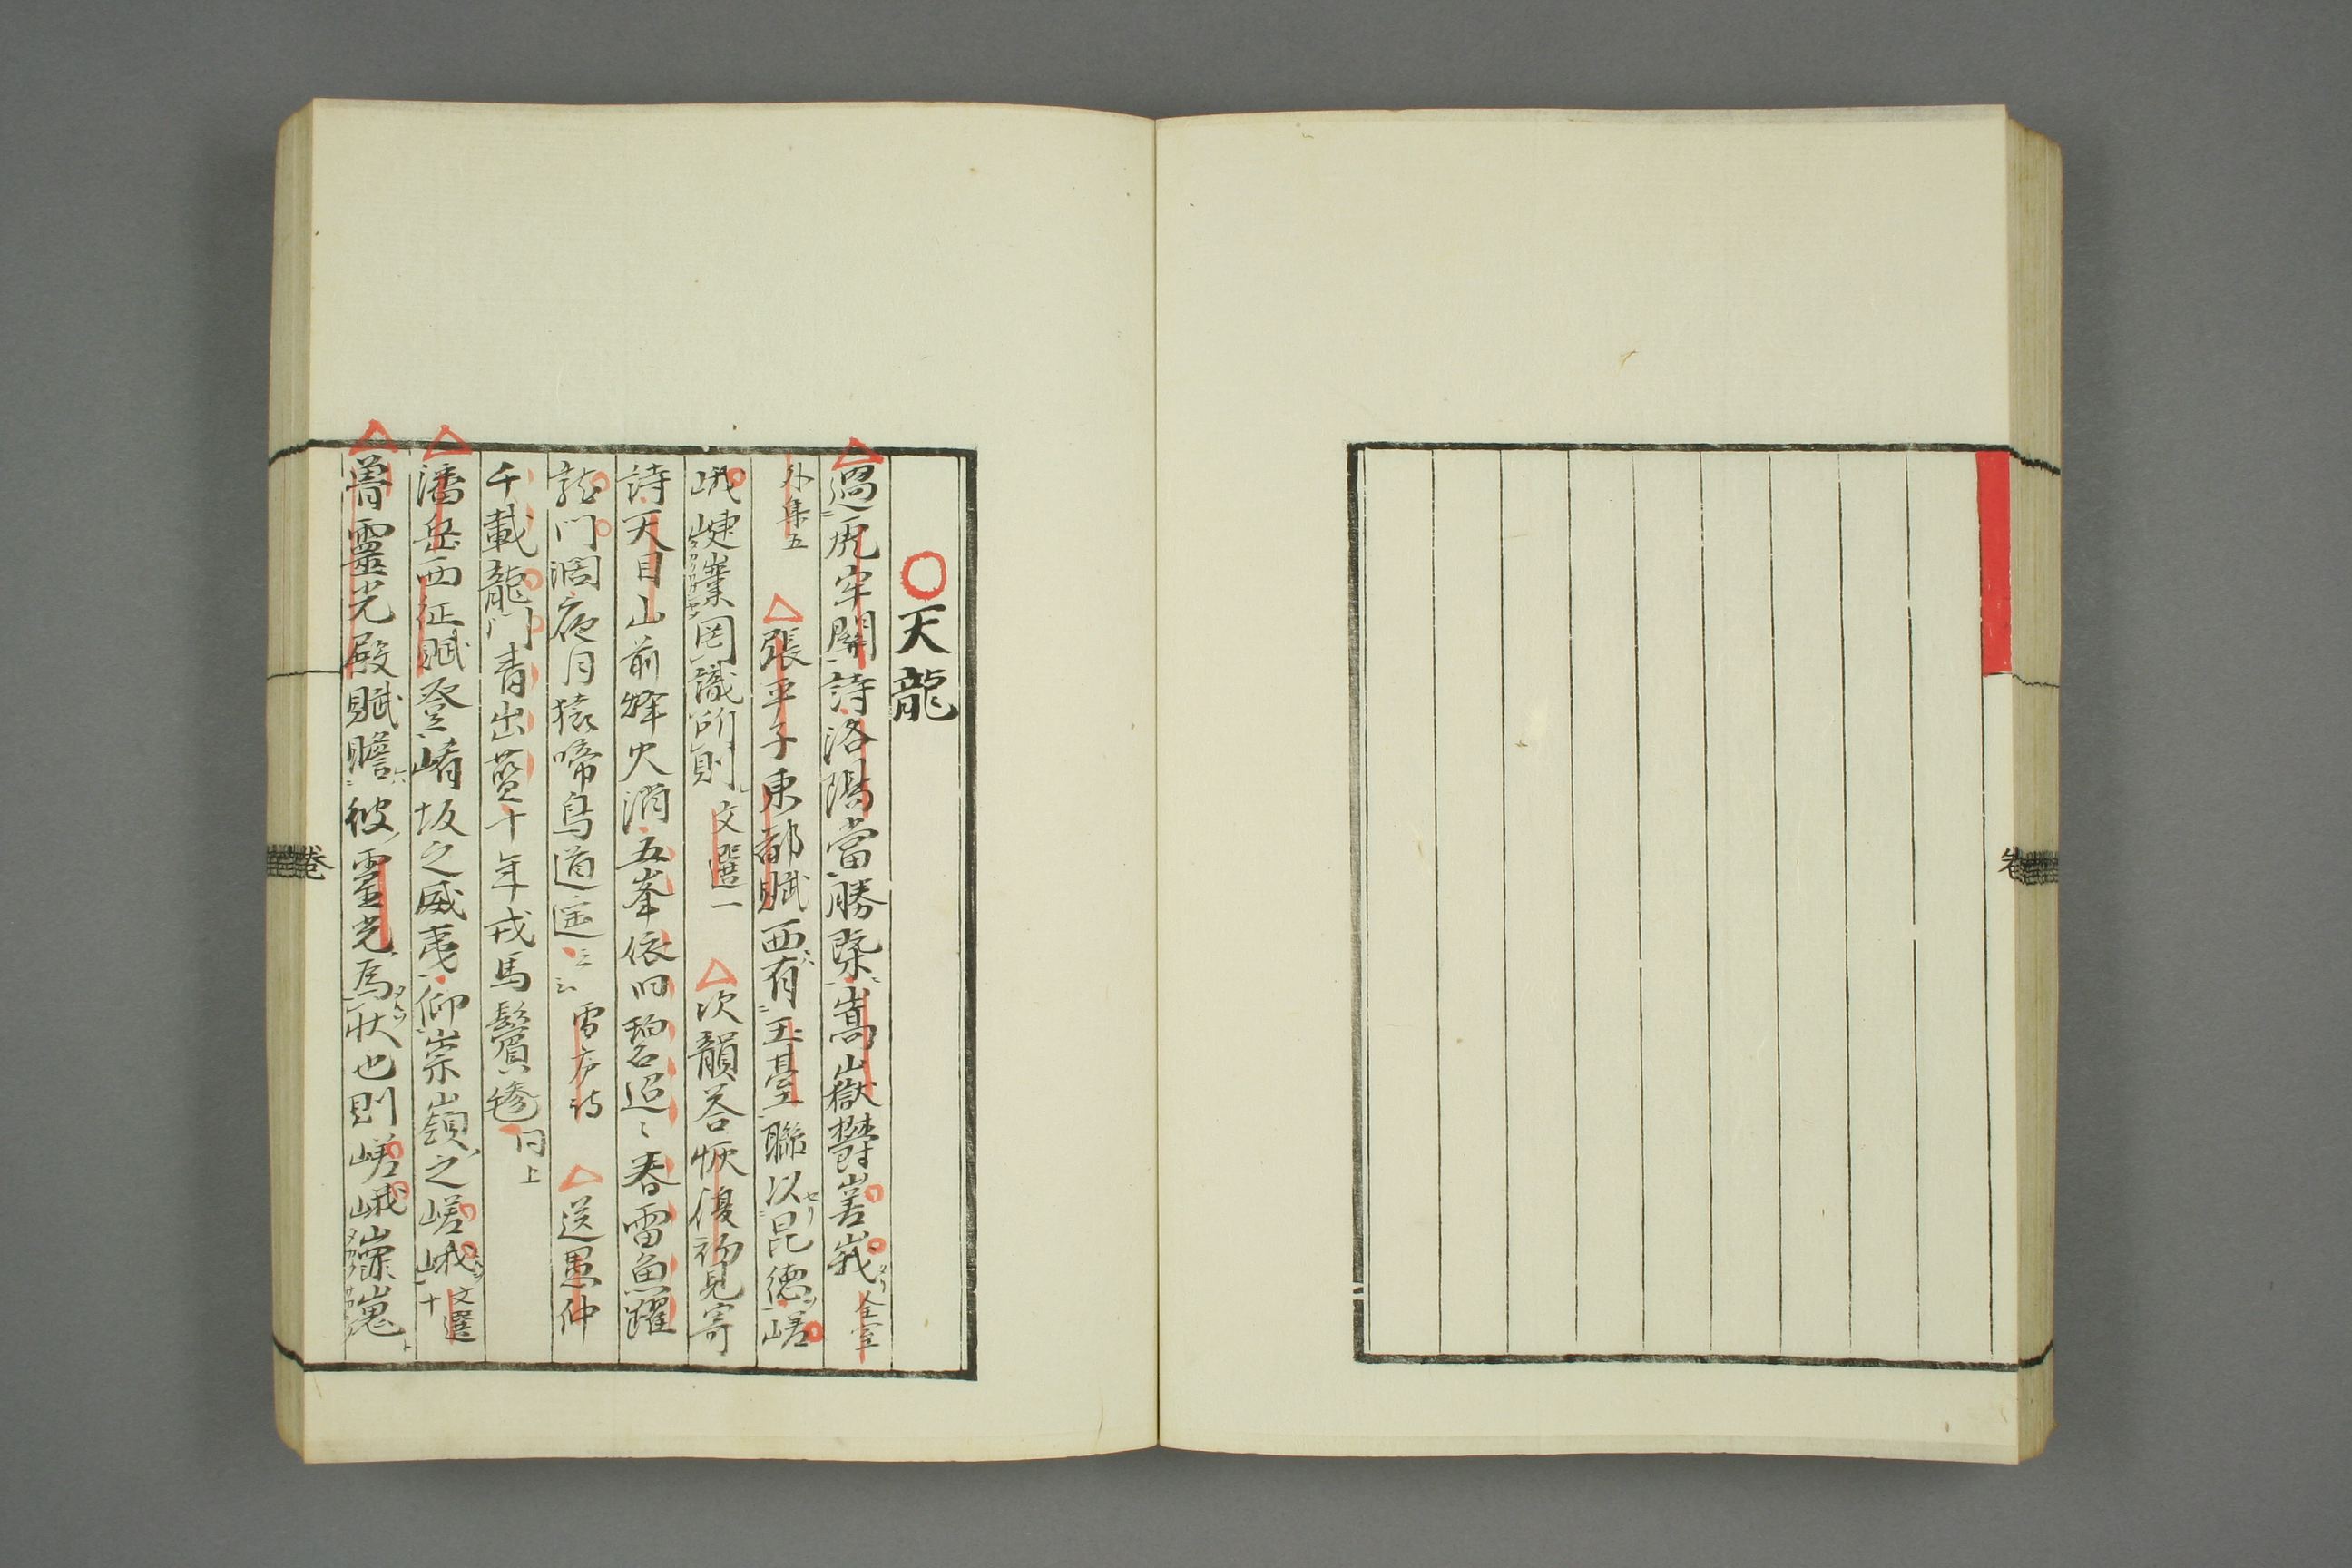 卷
天龍
過虎牢關詩洛陽當勝槩嵩嶽欝嵳峩全室
外集五 張平子東都賦西有玉臺聯以昆德嵯
峨崨嶫罔識所則 文選一 次韻荅恢復初見寄
詩天目山前烽火消五峯依旧碧迢〻春雷魚躍
龍門濶夜月猿啼鳥道遥云云 雪庐詩 送愚仲
千載龍門青出藍十年戎馬鬢毿同上
潘岳西征賦登崤坂之威夷仰崇嶺之嵯峨文選十
魯靈光殿賦瞻彼靈光爲狀也則嵯峨㠑嵬
卷